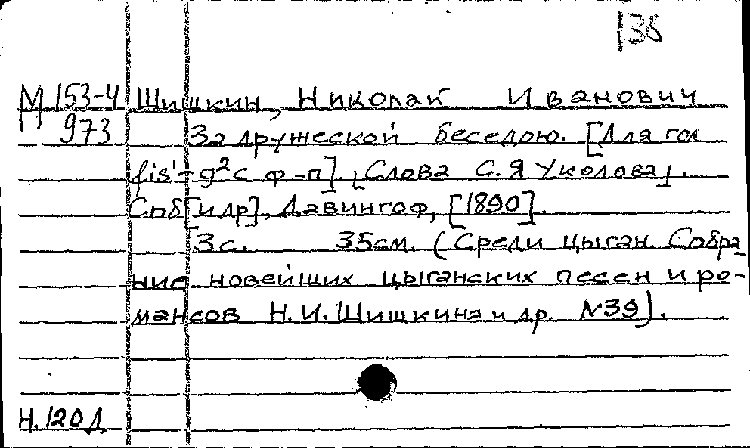 138
М 153-4 Шишкин, Николай Иванович
973 За дружеской беседою. [Для гол
fis'-g²с ф-п]. [Слова С.Я Уколова].
Спб[и др], Давингоф, [1890].
3с. 35см. (Среди цыган. Собра-
ние новейших цыганских песен и ро-
мансов Н.И.Шишкина и др. №39).
Н.120Д